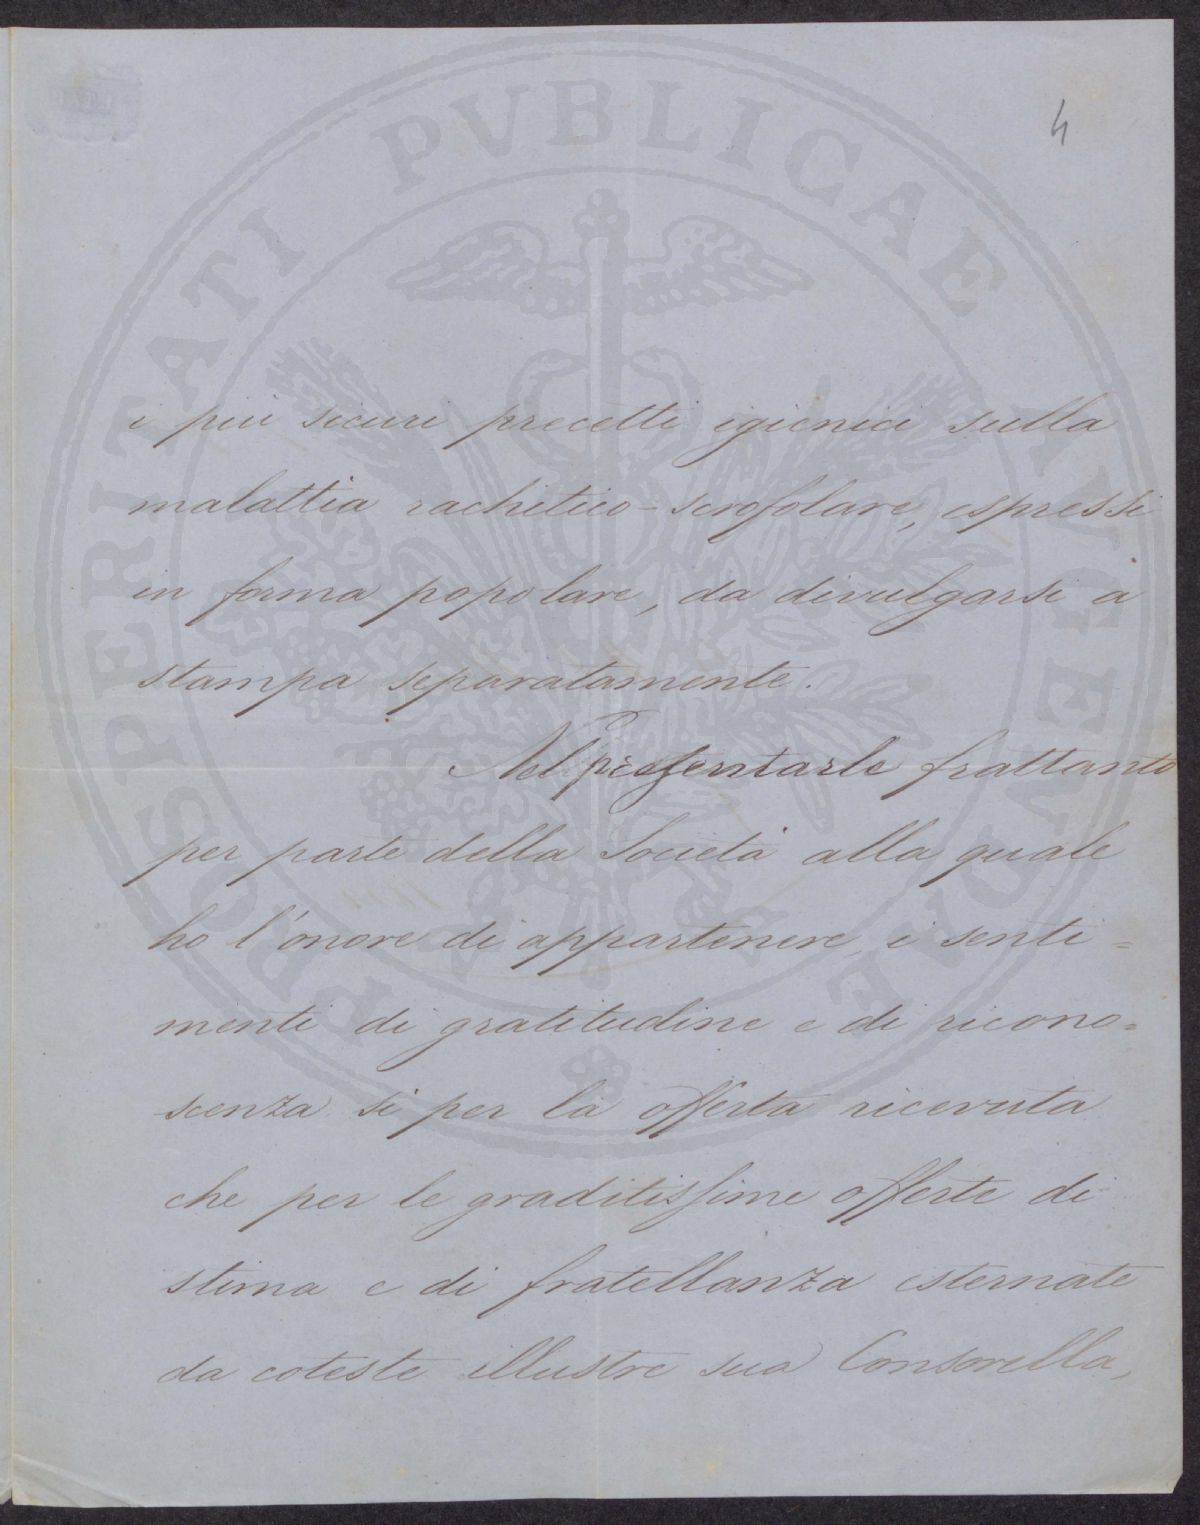 4
i più sicuri precetti igienici sulla
malattia rachitico-scrofolare, espressi
in forma popolare, da divulgarsi a
stampa separatamente.
Nel presentarle frattanto
per parte della Società alla quale
ho l'onore di appartenere, i senti=
menti di gratitudine e di ricono=
scenza si per la offerta ricevuta
che per le graditissime offerte di
stima e di fratellanza esternate
da coteste illustre sua Consorella,
PROSPERITATI PVBLICAE AVGENDAE